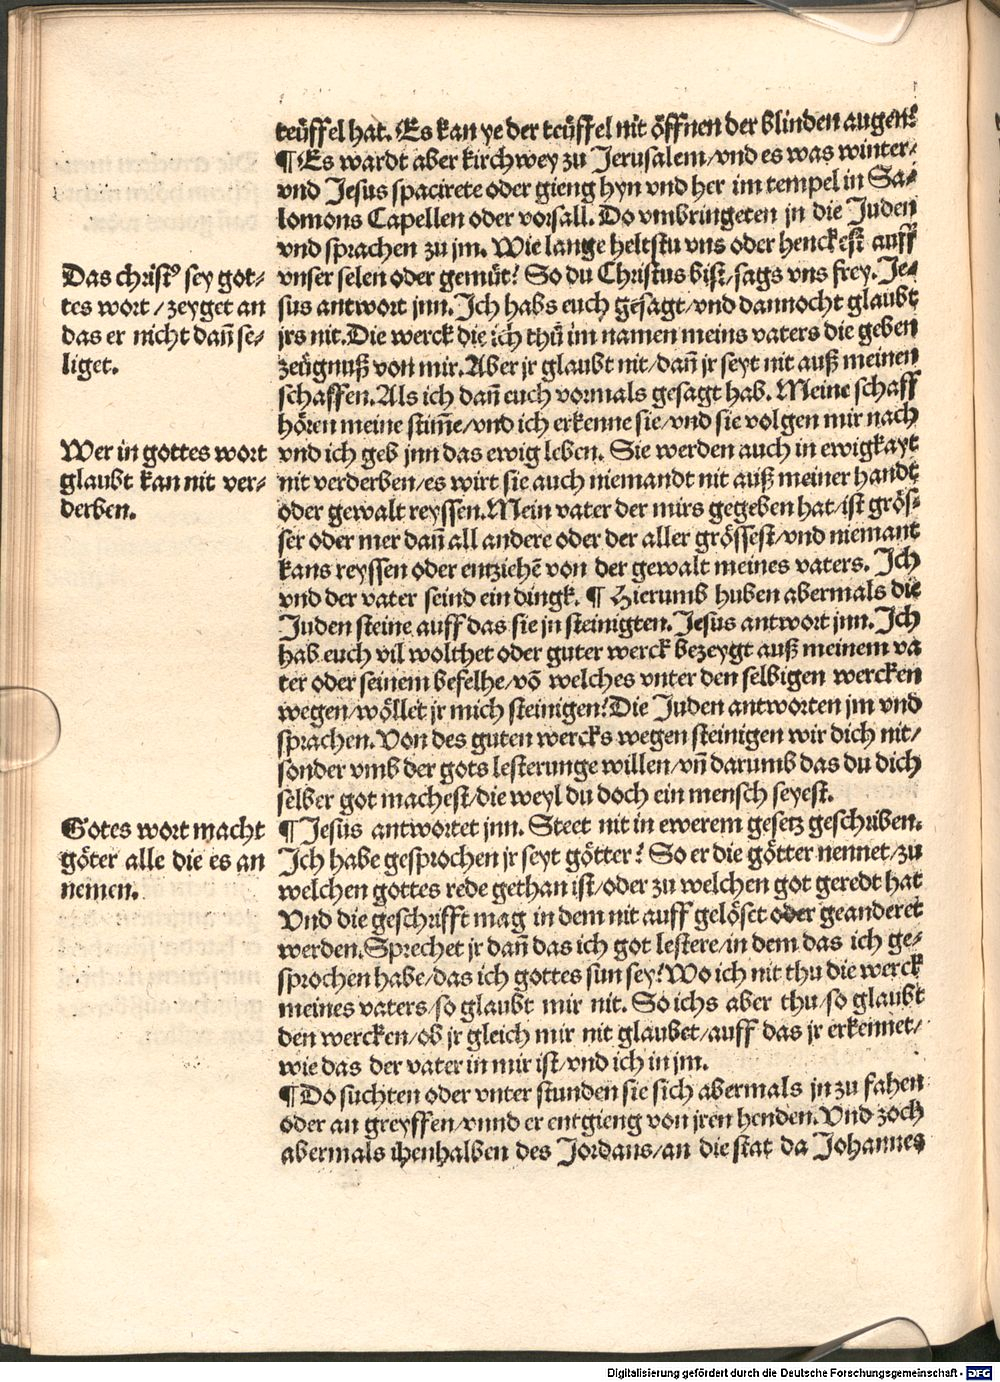 teüffel hat. Es kan ye der teüffel nit öffnen der blinden augen?
¶ Es wardt aber kirchwey zu Jerusalem/vnd es was winter/
vnd Jesus spacirete oder gieng hyn vnd her im tempel in Sa-
lomons Capellen oder vorsall. Do vmbringeten jn die Juden
vnd sprachen zu jm. Wie lange heltstu vns oder henckest auff
vnser selen oder gemüt? So du Christus bist/sags vns frey. Je-
sus antwort jnn. Ich habs euch gesagt/vnd dannocht glaubt
jrs nit. Die werck die ich thů im namen meins vaters die geben
zeügnuß von mir. Aber jr glaubt nit/dañ jr seyt nit auß meinen
schaffen. Als ich dañ euch vormals gesagt hab. Meine schaff
hören meine stim̃e/vnd ich erkenne sie/vnd sie volgen mir nach
vnd ich geb jnn das ewig leben. Sie werden auch in ewigkayt
nit verderben/es wirt sie auch niemandt nit auß meiner handt
oder gewalt reyssen. Mein vater der mirs gegeben hat/ist grös-
ser oder mer dañ all andere oder der aller grössest/vnd niemant
kans reyssen oder entziehẽ von der gewalt meines vaters. Ich
vnd der vater seind ein dingk. ¶ Hierumb huben abermals die
Juden steine auff das sie jn steinigten. Jesus antwort jnn. Ich
hab euch vil wolthet oder guter werck bezeygt auß meinem va
ter oder seinem befelhe/võ welches vnter den selbigen wercken
wegen/wöllet jr mich steinigen? Die Juden antworten jm vnd
sprachen. Von des guten wercks wegen steinigen wir dich nit/
sonder vmb der gots lesterunge willen/vñ darumb das du dich
selber got machest/die weyl du doch ein mensch seyest.
¶ Jesus antwortet jnn. Steet nit in ewerem gesetz geschriben.
Ich habe gesprochen jr seyt götter? So er die götter nennet/zu
welchen gottes rede gethan ist/oder zu welchen got geredt hat
Vnd die geschrifft mag in dem nit auff gelöset oder geanderet
werden. Sprechet jr dañ das ich got lestere/in dem das ich ge-
sprochen habe/das ich gottes sun sey? Wo ich nit thu die werck
meines vaters/so glaubt mir nit. So ichs aber thu/so glaubt
den wercken/ob jr gleich mir nit glaubet/auff das jr erkennet/
wie das der vater in mir ist/vnd ich in jm.
¶ Do suchten oder vnter stunden sie sich abermals jn zu fahen
oder an greyffen/vnnd er entgieng von jren henden. Vnd zoch
abermals ihenhalben des Jordans/an die stat da Johannes
Das christ⁹ sey got-
tes wort/zeyget an
das er nicht dañ se-
liget.
Wer in gottes wort
glaubt kan nit ver-
derben.
Gotes wort macht
göter alle die es an
nemen.
Digitalisierung gefördert durch die Deutsche Forschungsgemeinschaft - DFG